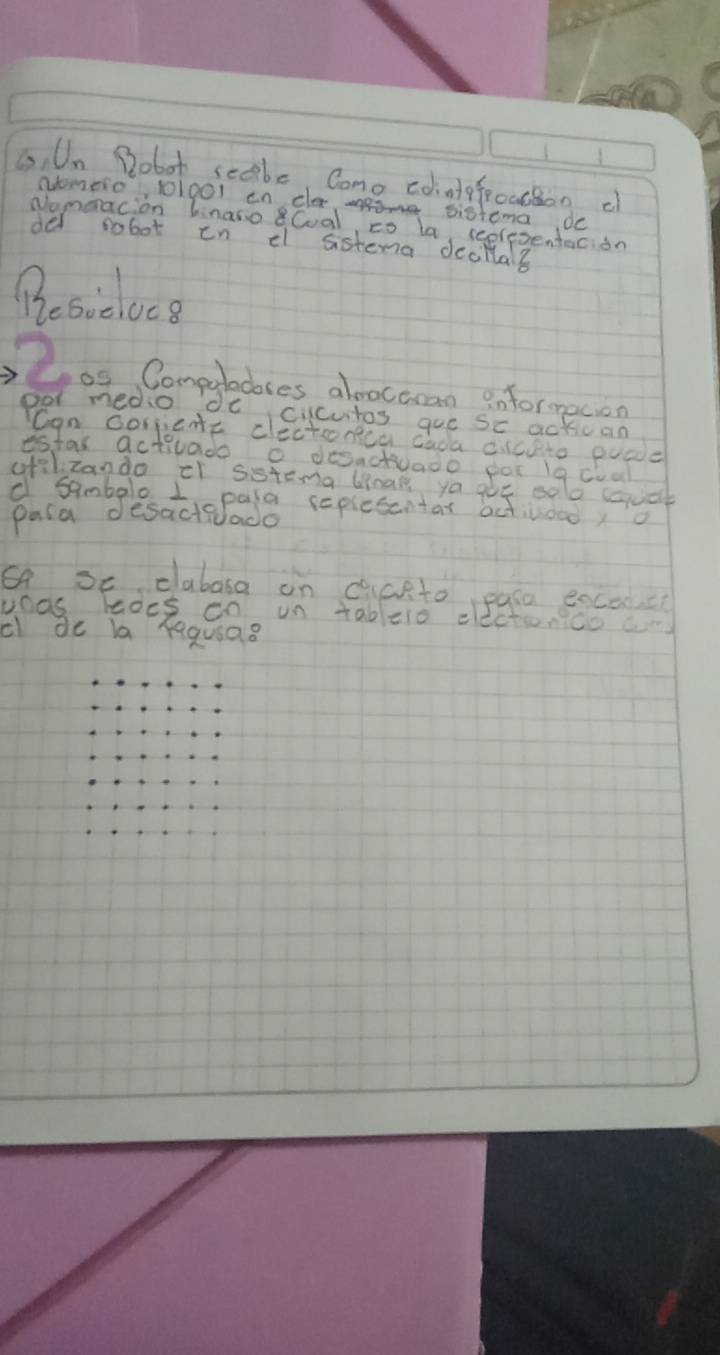 6. Un Robot recibe Como el
Número, 101001 en el sistema de
Numeracion binario ¿Cual es la representación
del robot en el sistema
Resuelve:
→ Los Computadores almacenan informacion
por medio de circuitos que se activan
Con corriente electronica cada circuito puede
estar activado o desactivado por la cual
utilizando el sistema ya que solo
el simbolo 1 para representar y 0
para desactivado
Si se elabora un para
unas ledes en un tablero electronico
el de la figura: